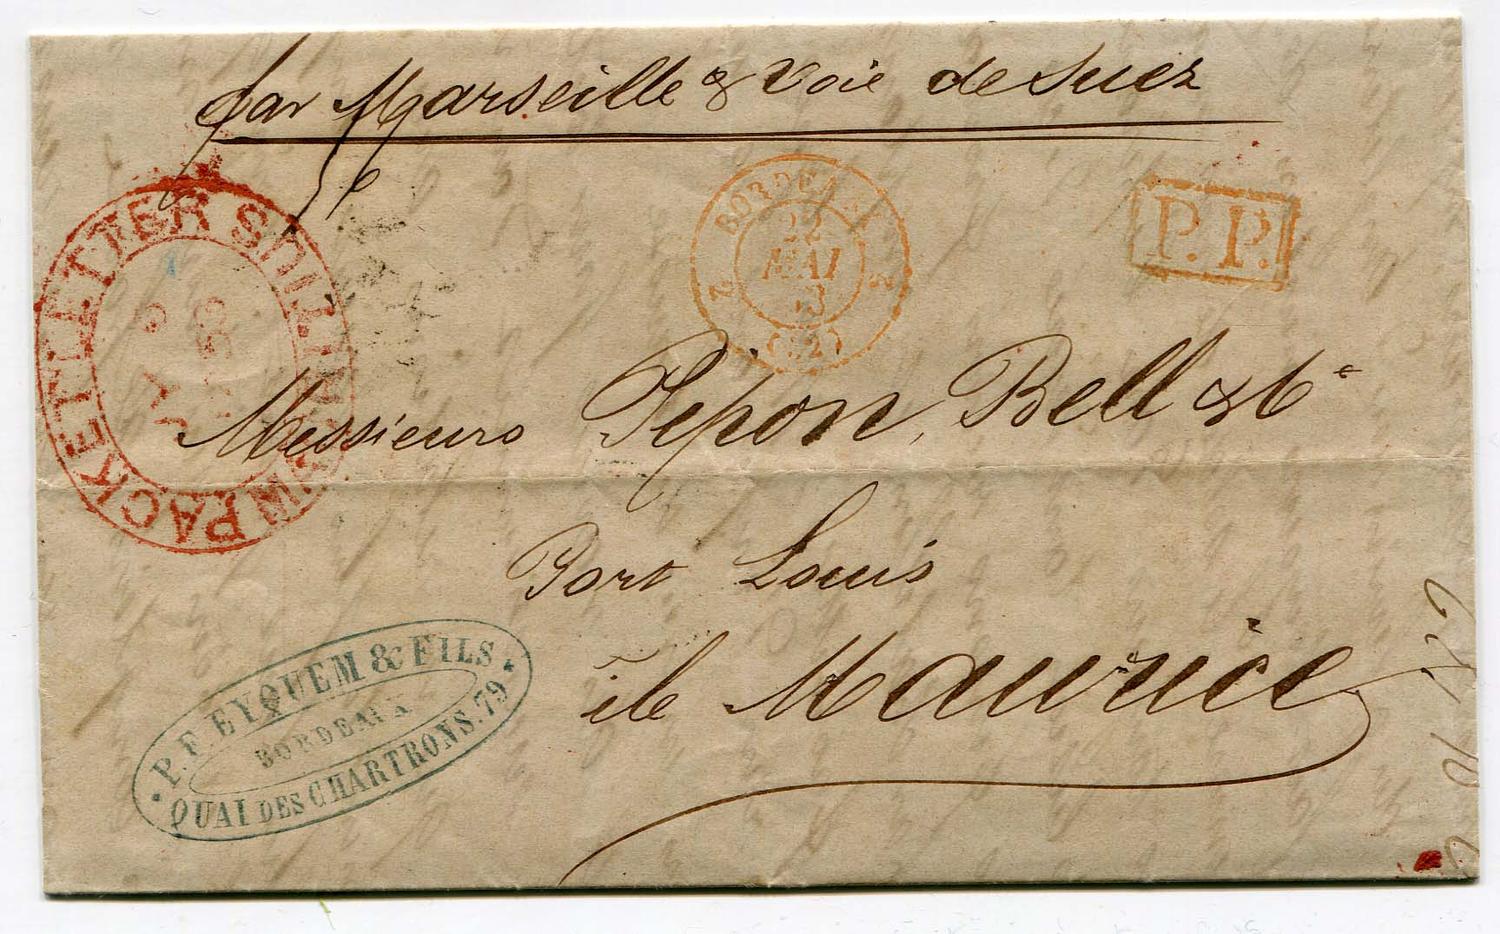 par Marseille & Voie de Suez
PACKET LETTER MAURITIUS
JY 3
58
BORDEAUX
22
MAI
(32)
P.P.
Messieurs Pipon, Bell & Ce
Port Louis
île Maurice
P. F. EYQUEM & FILS
BORDEAUX
QUAI DES CHARTRONS. 79